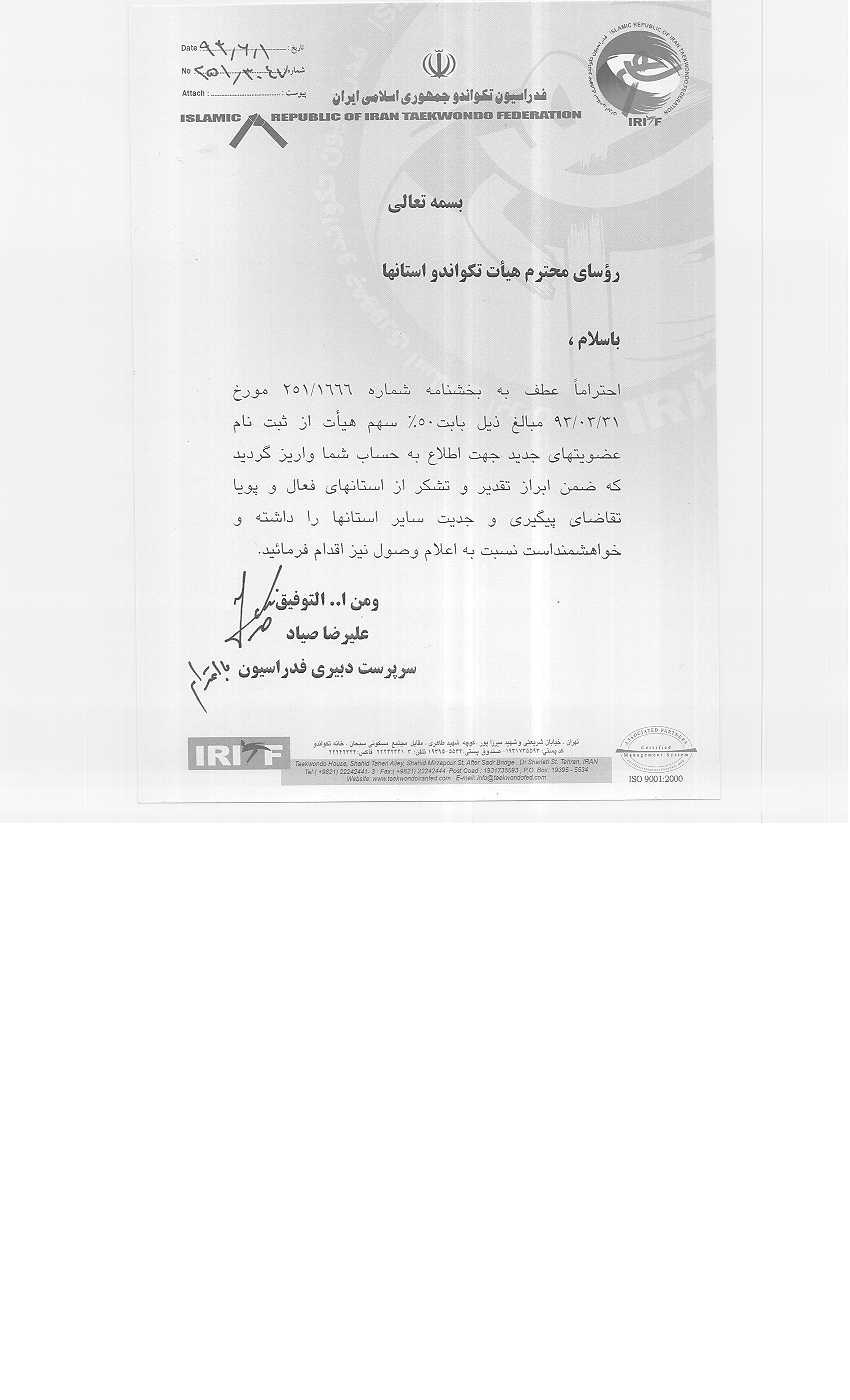 تاریخ : ۹۳/۶/۱ Date
شماره: ۲۵۱/۳۰۴۷ No
پیوست : Attach :
فدراسیون تکواندو جمهوری اسلامی ایران
ISLAMIC REPUBLIC OF IRAN TAEKWONDO FEDERATION
ISLAMIC REPUBLIC OF IRAN TAEKWONDO FEDERATION
IRITF
بسمه تعالی
رؤسای محترم هیأت تکواندو استانها
باسلام ،
احتراماً عطف به بخشنامه شماره ۲۵۱/۱۶۶۶ مورخ
۹۳/۰۳/۳۱ مبالغ ذیل بابت ۵۰٪ سهم هیأت از ثبت نام
عضویتهای جدید جهت اطلاع به حساب شما واریز گردید
که ضمن ابراز تقدیر و تشکر از استانهای فعال و پویا
تقاضای پیگیری و جدیت سایر استانها را داشته و
خواهشمنداست نسبت به اعلام وصول نیز اقدام فرمائید.
ومن ا.. التوفیق
علیرضا صیاد
سرپرست دبیری فدراسیون
با احترام
IRITF
تهران ، خیابان شریعتی و شهید میرزا پور ، کوچه شهید طاهری ، مقابل مجتمع مسکونی سبحان ، خانه تکواندو
Taekwondo House, Shahid Taheri Alley, Shahid Mirzapour St, After Sadr Bridge , Dr Shariati St. Tehran, IRAN
Tel : (+9821) 22242441- 3 : Fax:( +9821) 22242444 Post Coad : 1931735593 ; P.O. Box: 19395 - 5534
Website: www.taekwondoiranfed.com E-mail: info@taekwondofed.com
ASSOCIATED PARTNERS
Certified
Management System
ISO 9001:2000